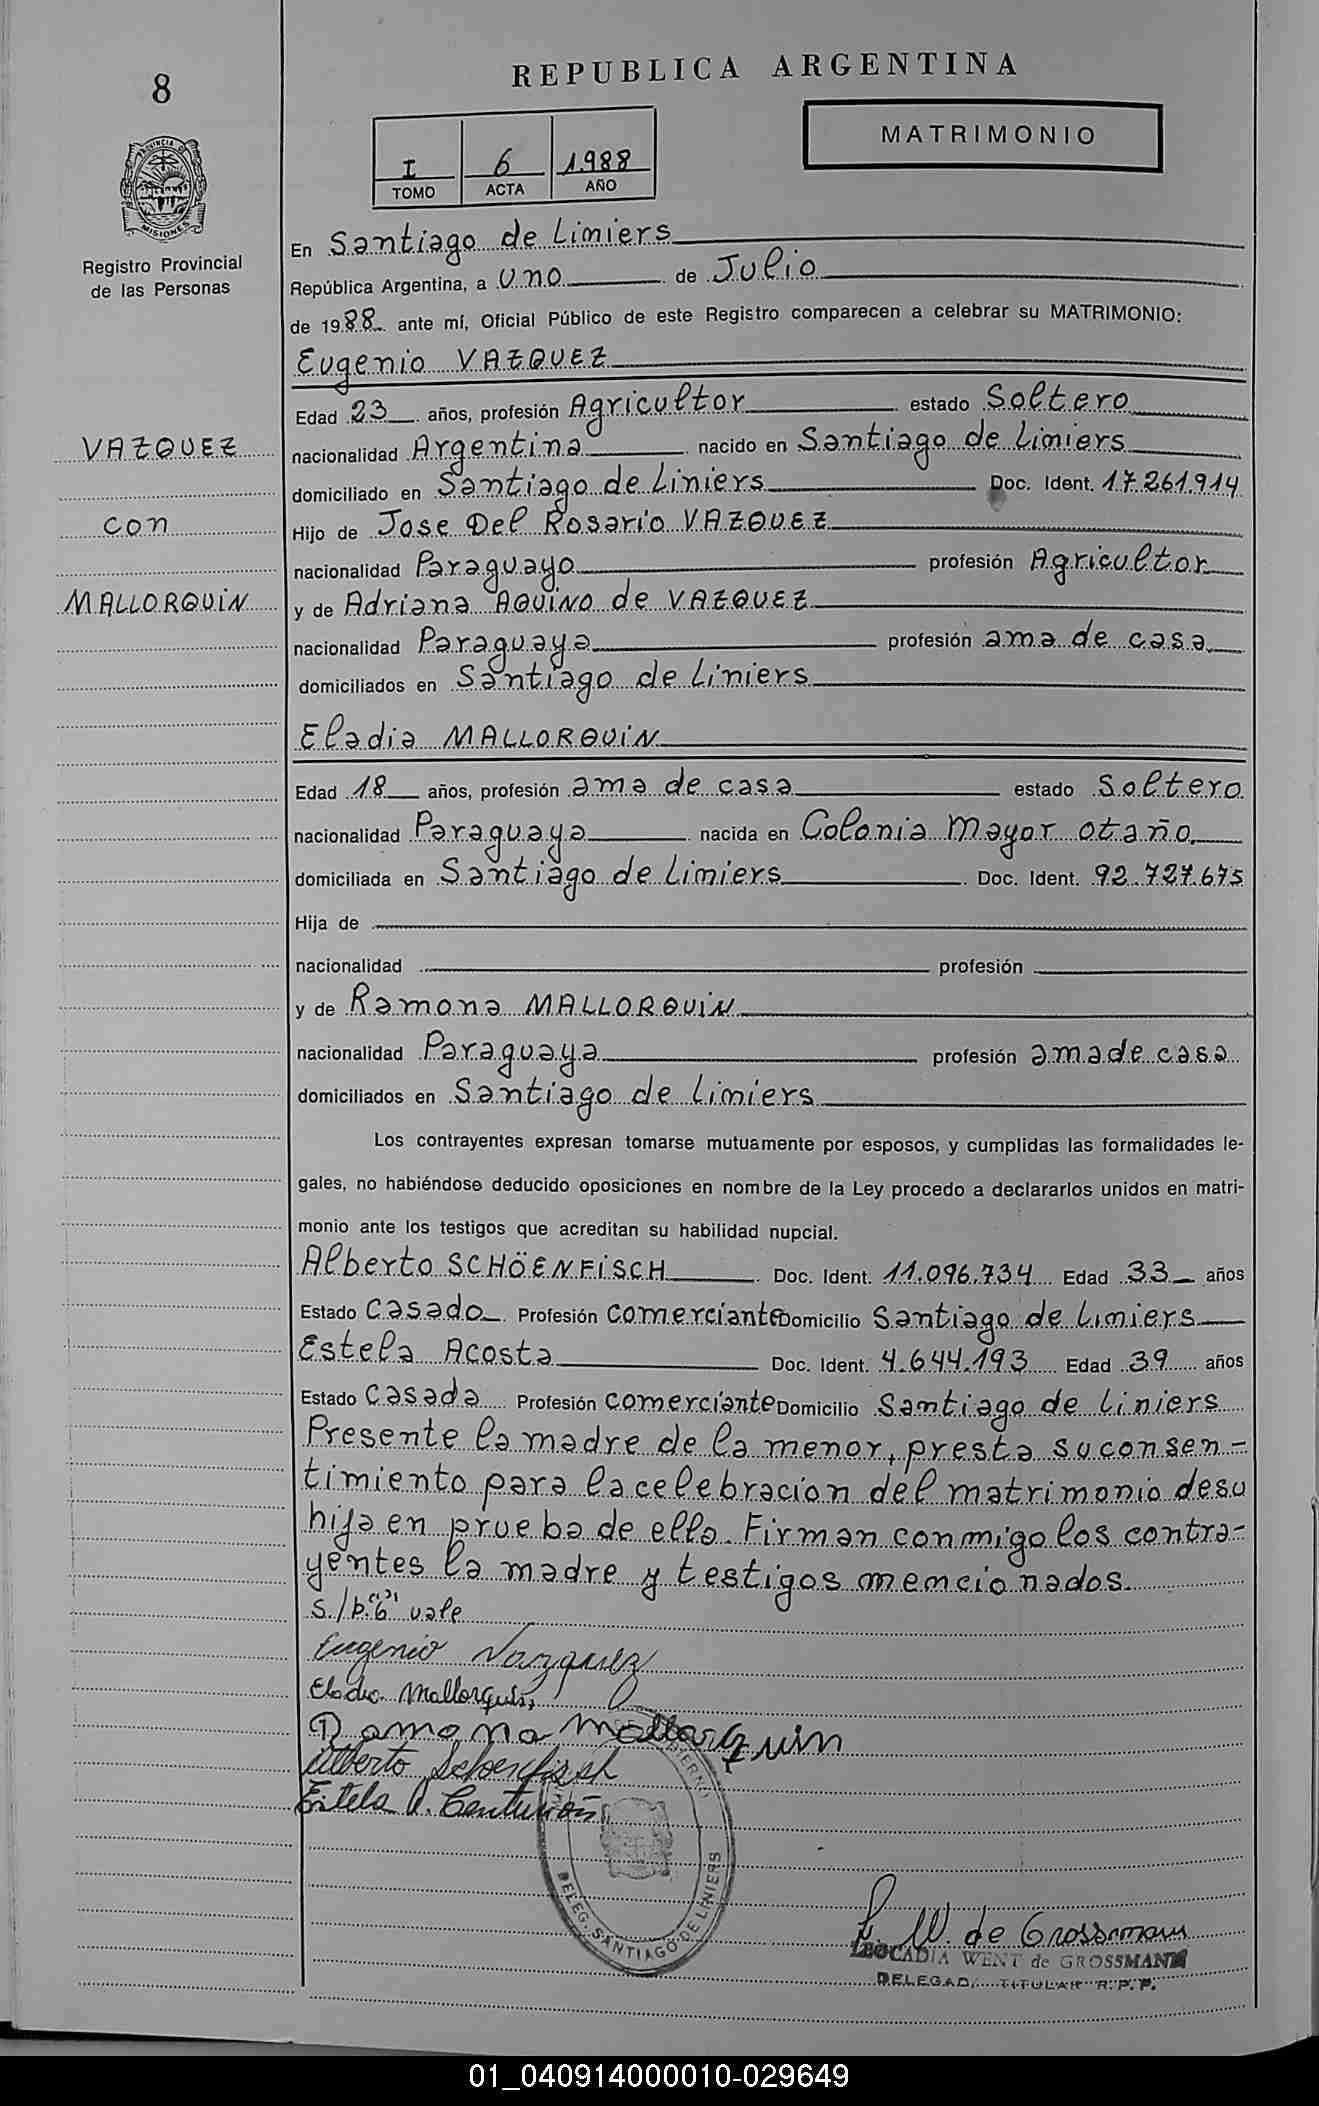 8
REPUBLICA ARGENTINA
MATRIMONIO
I 6 1988
TOMO ACTA AÑO
PROVINCIA DE MISIONES
Registro Provincial
de las Personas
En Santiago de Liniers
República Argentina, a uno de Julio
de 1988 ante mí, Oficial Público de este Registro comparecen a celebrar su MATRIMONIO:
Eugenio VAZQUEZ
Edad 23 años, profesión Agricultor estado Soltero
VAZQUEZ
nacionalidad Argentina nacido en Santiago de Liniers
domiciliado en Santiago de Liniers Doc. Ident. 17.261.914
con
Hijo de Jose Del Rosario VAZQUEZ
nacionalidad Paraguayo profesión Agricultor
MALLORQUIN
y de Adriana AQUINO de VAZQUEZ
nacionalidad Paraguaya profesión ama de casa
domiciliados en Santiago de Liniers
Eladia MALLORQUIN
Edad 18 años, profesión ama de casa estado Soltero
nacionalidad Paraguaya nacida en Colonia Mayor otaño
domiciliada en Santiago de Liniers Doc. Ident. 92.727.675
Hija de
nacionalidad profesión
y de Ramona MALLORQUIN
nacionalidad Paraguaya profesión ama de casa
domiciliados en Santiago de Liniers
Los contrayentes expresan tomarse mutuamente por esposos, y cumplidas las formalidades le-
gales, no habiéndose deducido oposiciones en nombre de la Ley procedo a declararlos unidos en matri-
monio ante los testigos que acreditan su habilidad nupcial.
Alberto SCHÖENFISCH Doc. Ident. 11.096.734 Edad 33 años
Estado Casado Profesión comerciante Domicilio Santiago de Liniers
Estela Acosta Doc. Ident. 4.644.193 Edad 39 años
Estado Casada Profesión comerciante Domicilio Santiago de Liniers
Presente la madre de la menor, presta su consen-
timiento para la celebracion del matrimonio de su
hija en prueba de ello. Firman conmigo los contra-
yentes la madre y testigos mencionados.
S./b. "6" vale
Eugenio Vazquez
Eladia Mallorquin
Ramona Mallorquin
Alberto Schoenfisch
Estela A. Centurión
DELEG. SANTIAGO DE LINIERS
L. W. de Grossmann
LEOCADIA WENT de GROSSMANN
DELEGADA TITULAR R.P.P.
01_040914000010-029649